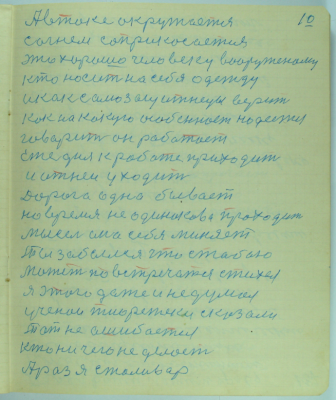 10
А в токе окружается
согнем соприкосается
это хорошо человеку вооруженому
кто носит на себя одежду
и как самозащитнецы верит
как на какую особеност надется
говарит он работает
Еже дня к работе приходит
и отней уходит
Дорога одна бывает
но время не одинаково проходит
мысел она себя миняет
Ты забылся что стабою
может повстречатся стихея
я этого даже и не думал
ученои тиоретеки сказали
тот не ашибается
кто ничего не делоет
А раз я сталивар